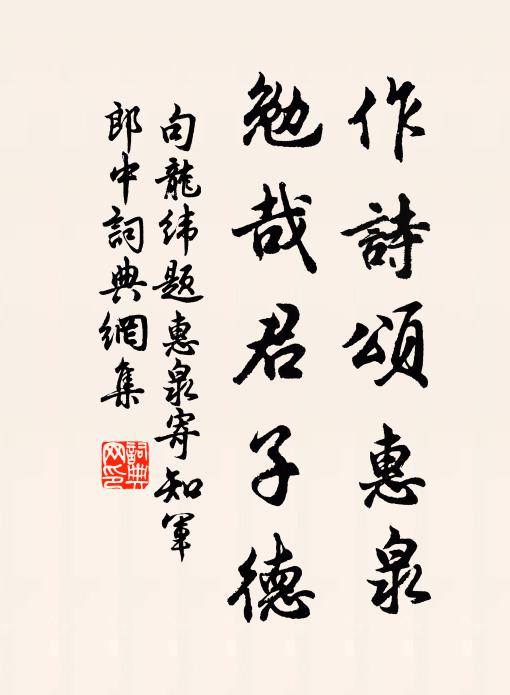 作詩頌惠泉
勉哉君子德
句龍緯題惠泉寄知軍
郎中詞典網集
詞典網印